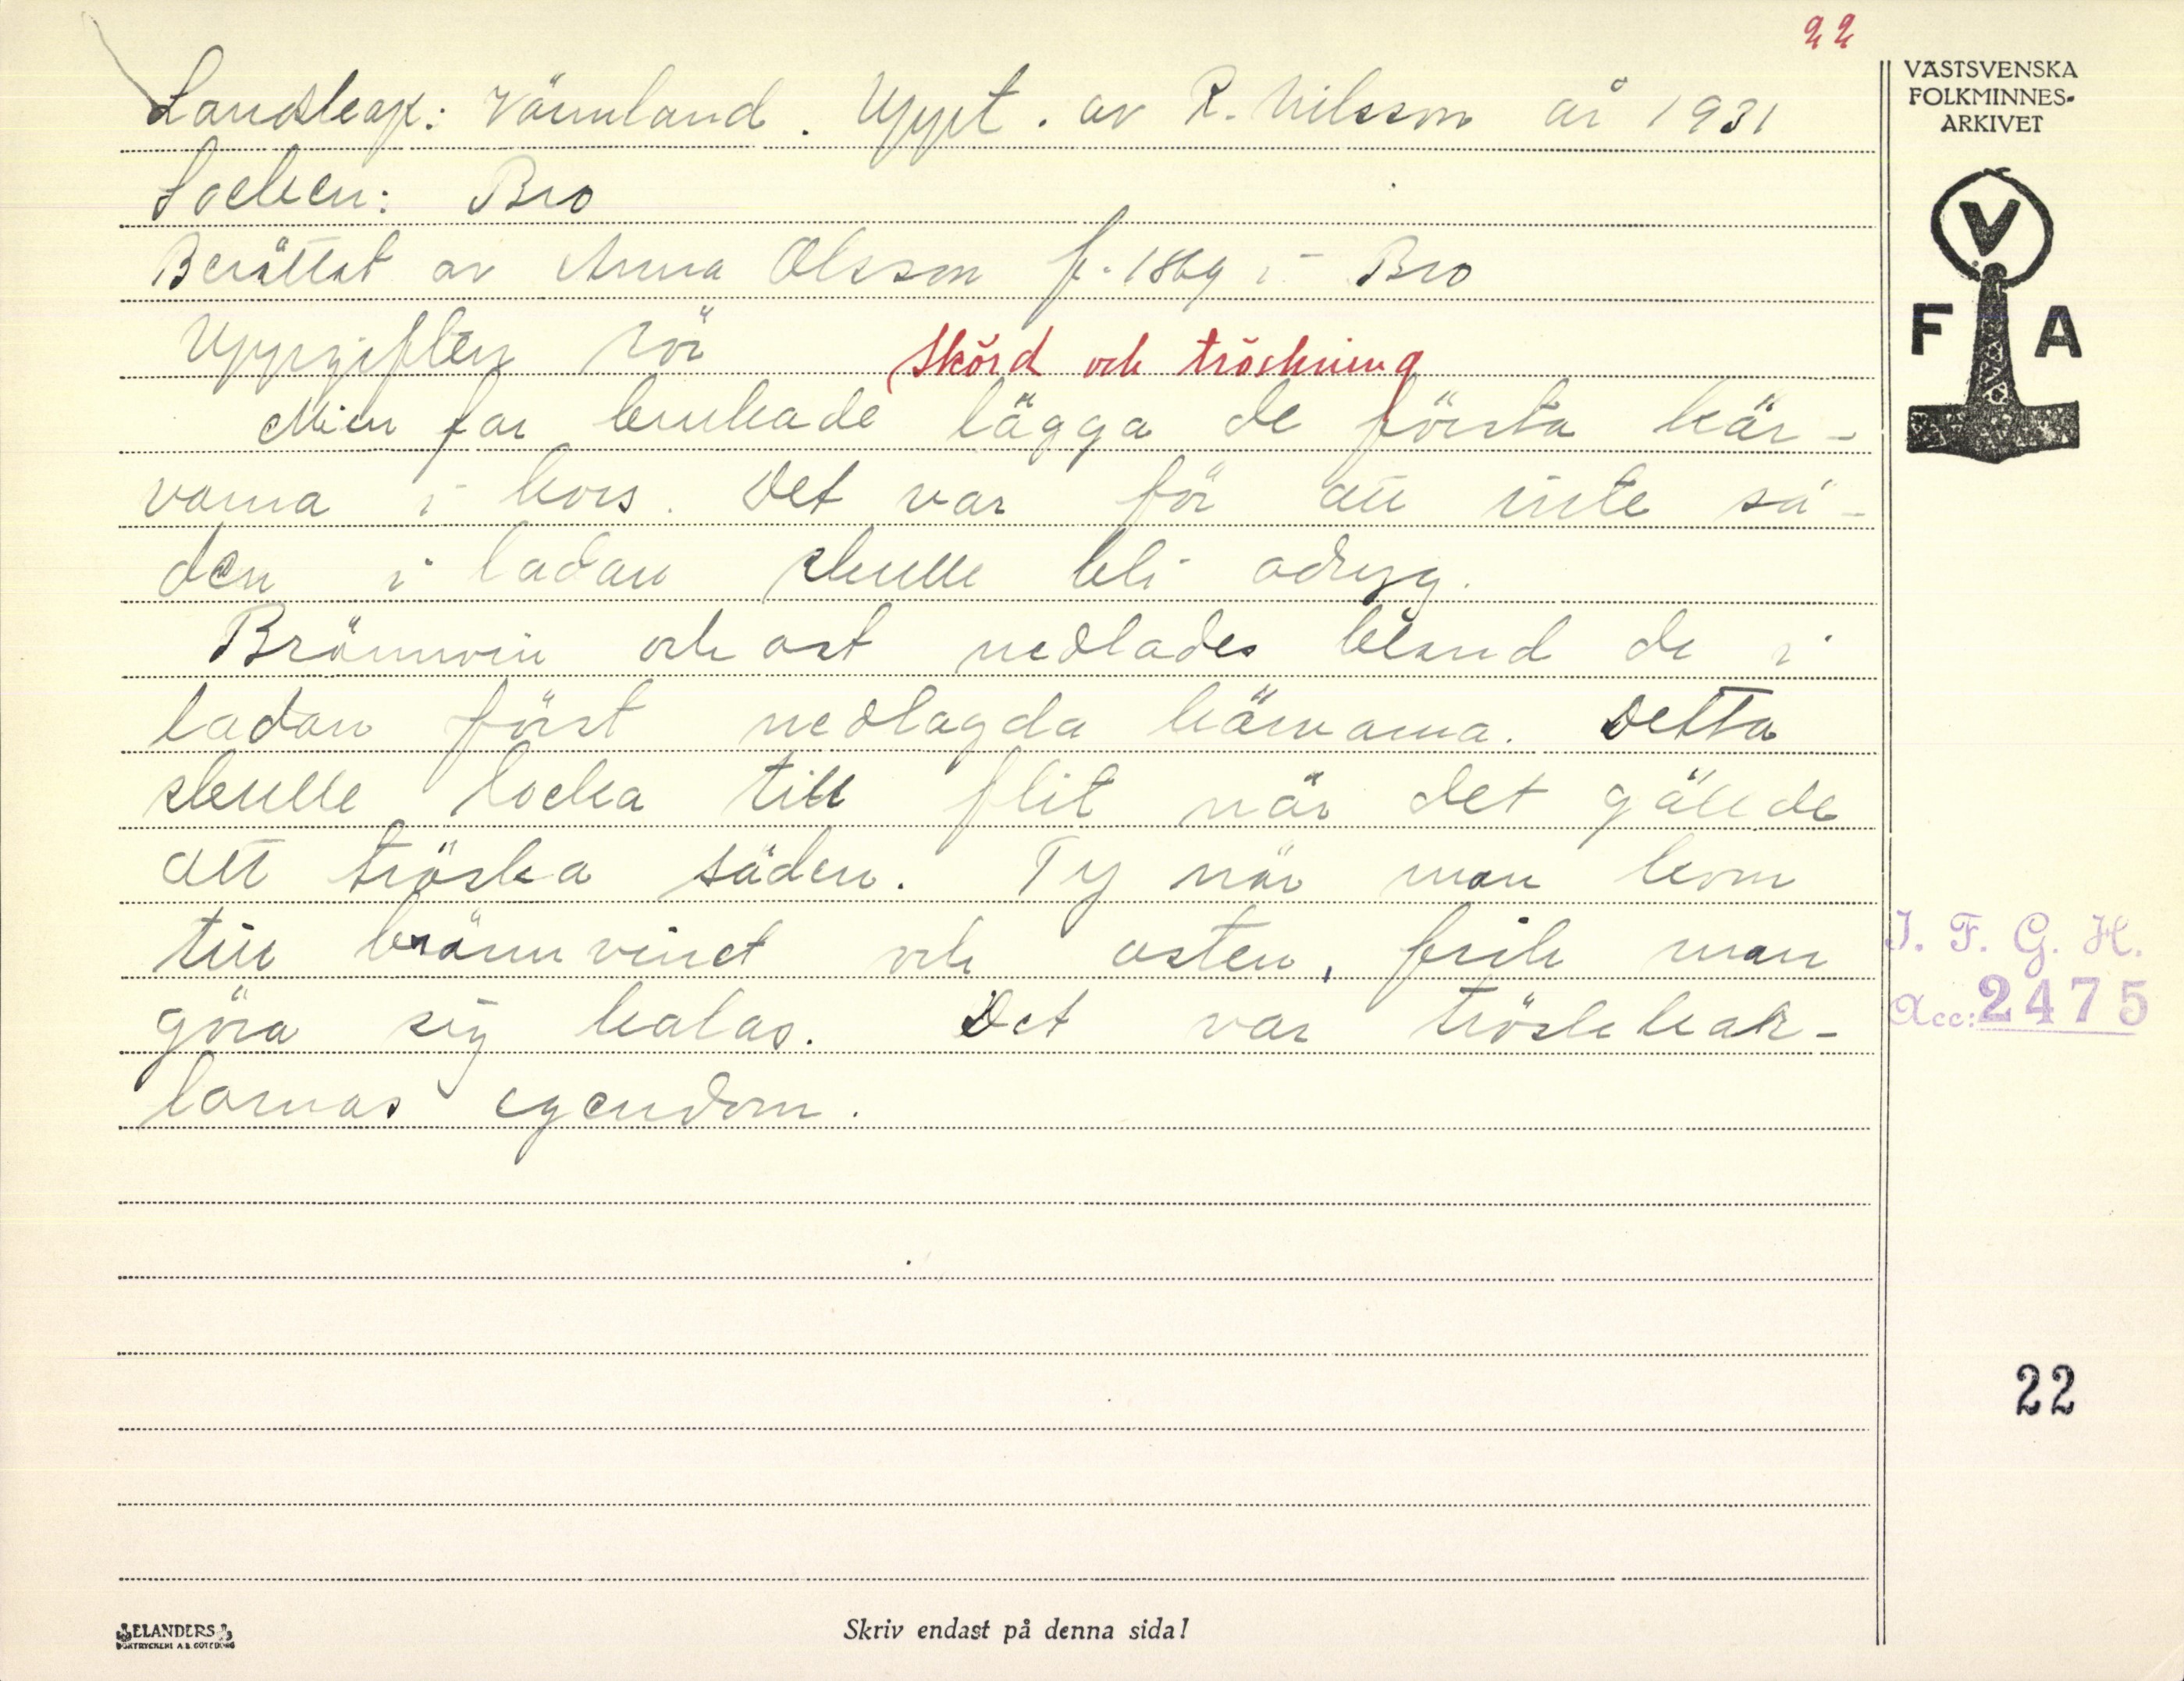 22
Landskap: Värmland. Uppt. av R. Nilsson år 1931
Socken: Bro
Berättat av Anna Olsson f. 1869 i Bro
Uppgiften rör Skörd och tröskning
Min far brukade lägga de första kär-
varna i kors. Det var för att inte sä-
den i ladan skulle bli odryg.
Brännvin och ost nedlades bland de i
ladan först nedlagda kärvarna. Detta
skulle locka till flit när det gällde
att tröska säden. Ty när man kom
till brännvinet och osten, fick man
göra sig kalas. Det var tröskkar-
larnas egendom.
VÄSTSVENSKA
FOLKMINNES-
ARKIVET
V
F A
I. F. G. H.
Acc: 2475
22
ELANDERS
BOKTRYCKERI A.B. GÖTEBORG
Skriv endast på denna sida!